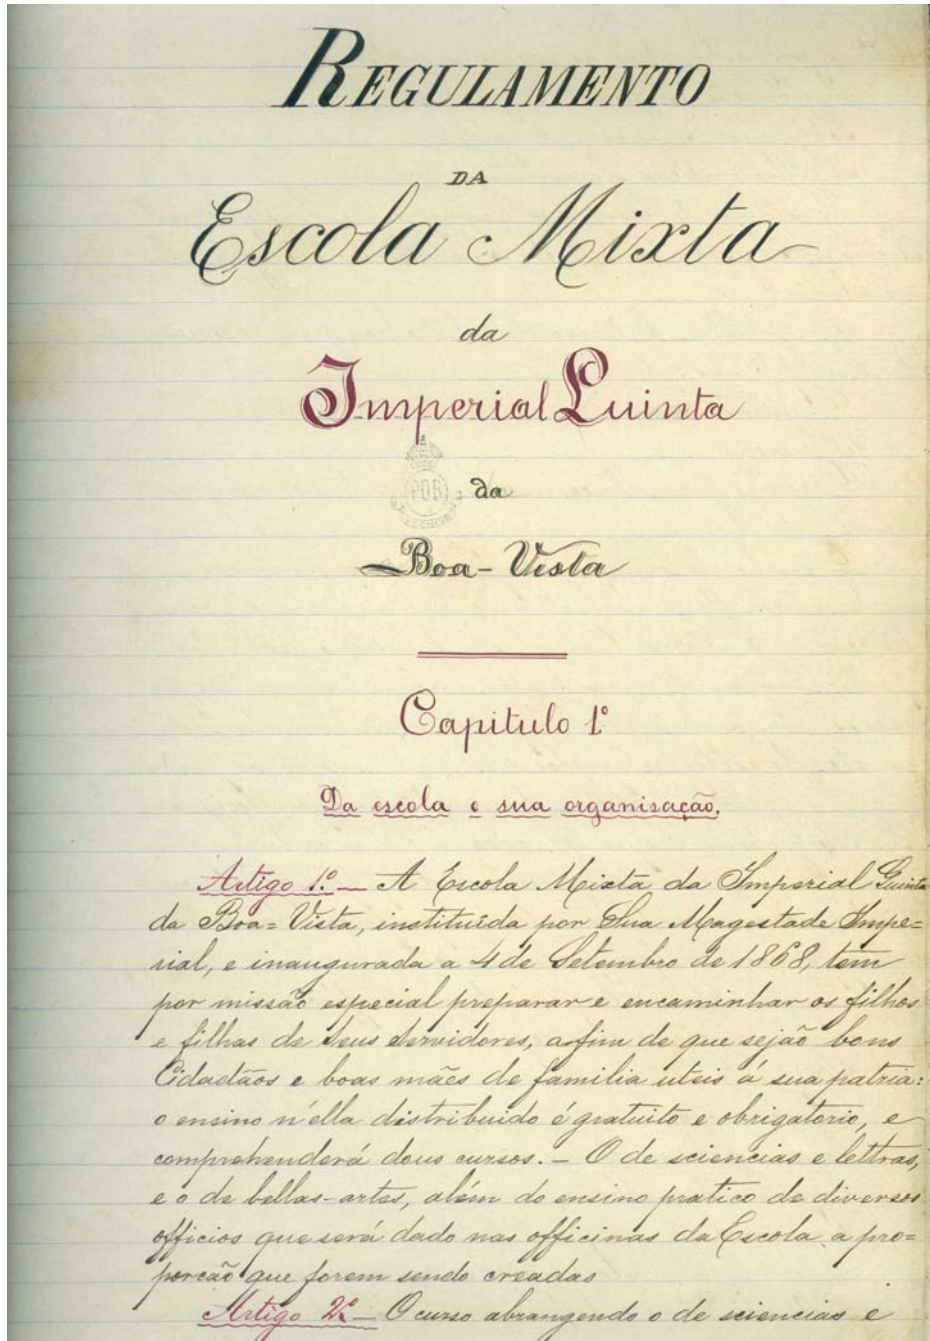 REGULAMENTO
DA
Escola Mixta
da
Imperial Quinta
da
Boa-Vista
Capitulo 1º
Da escola e sua organisação.
Artigo 1º — A Escola Mixta da Imperial Quinta
da Boa=Vista, instituída por Sua Magestade Impe=
rial, e inaugurada a 4 de Setembro de 1868, tem
por missão especial preparar e encaminhar os filhos
e filhas de Seus Servidores, afim de que sejão bons
Cidadãos e boas mães de familia uteis á sua patria:
o ensino n'ella distribuido é gratuito e obrigatorio, e
comprehenderá dous cursos. — O de sciencias e lettras,
e o de bellas-artes, além do ensino pratico de diversos
officios que será dado nas officinas da Escola a pro=
porcão que forem sendo creadas
Artigo 2º — O curso abrangendo o de sciencias e